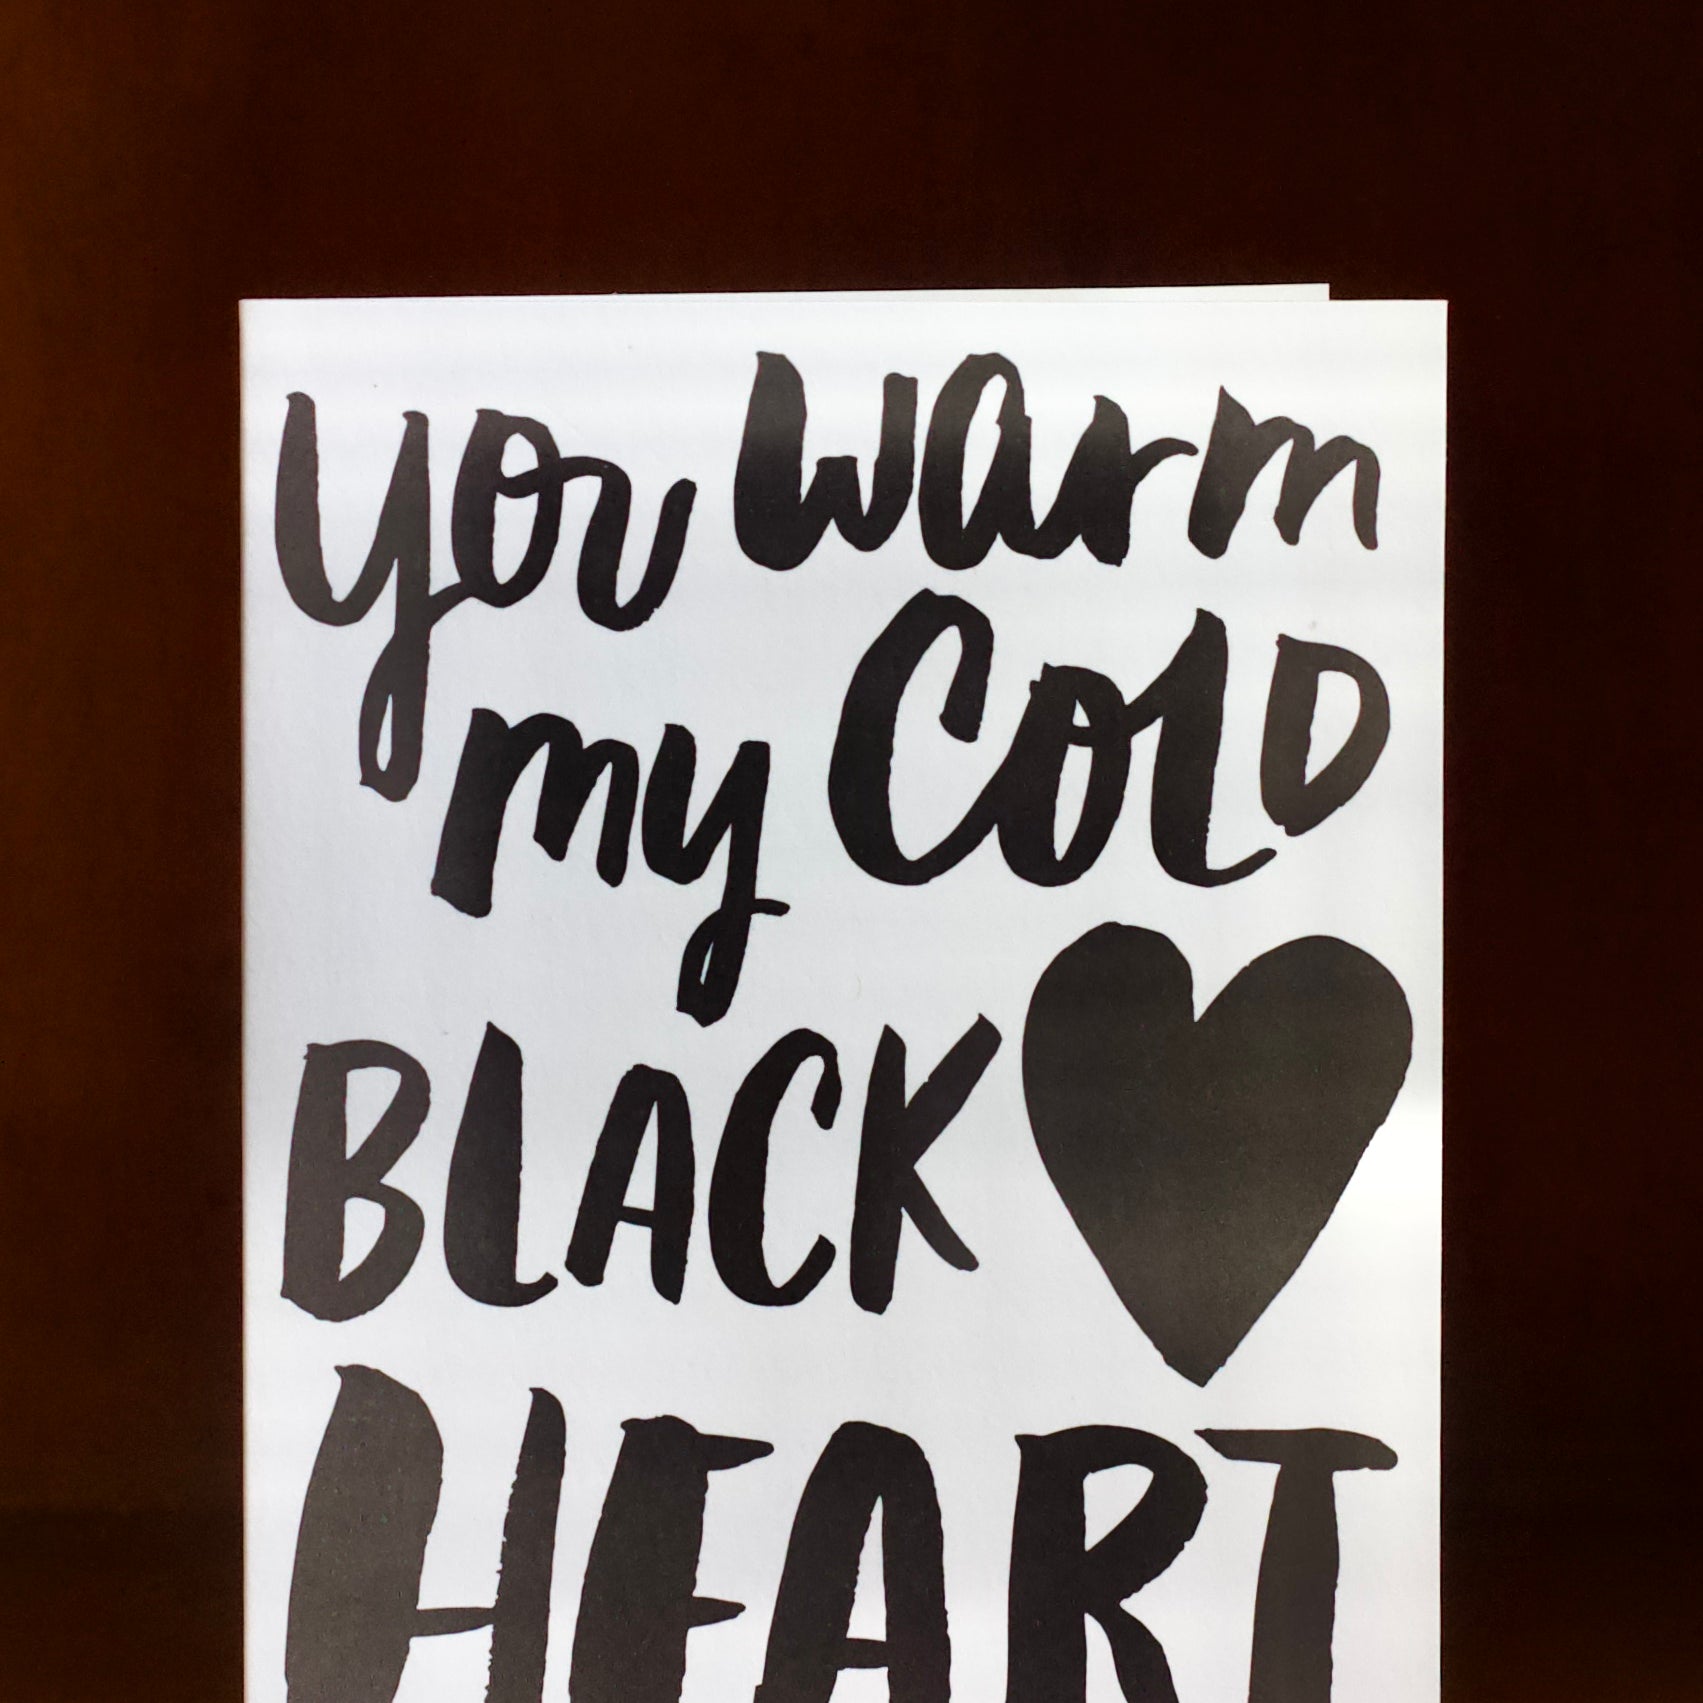 you warm
my COLD
BLACK
HEART